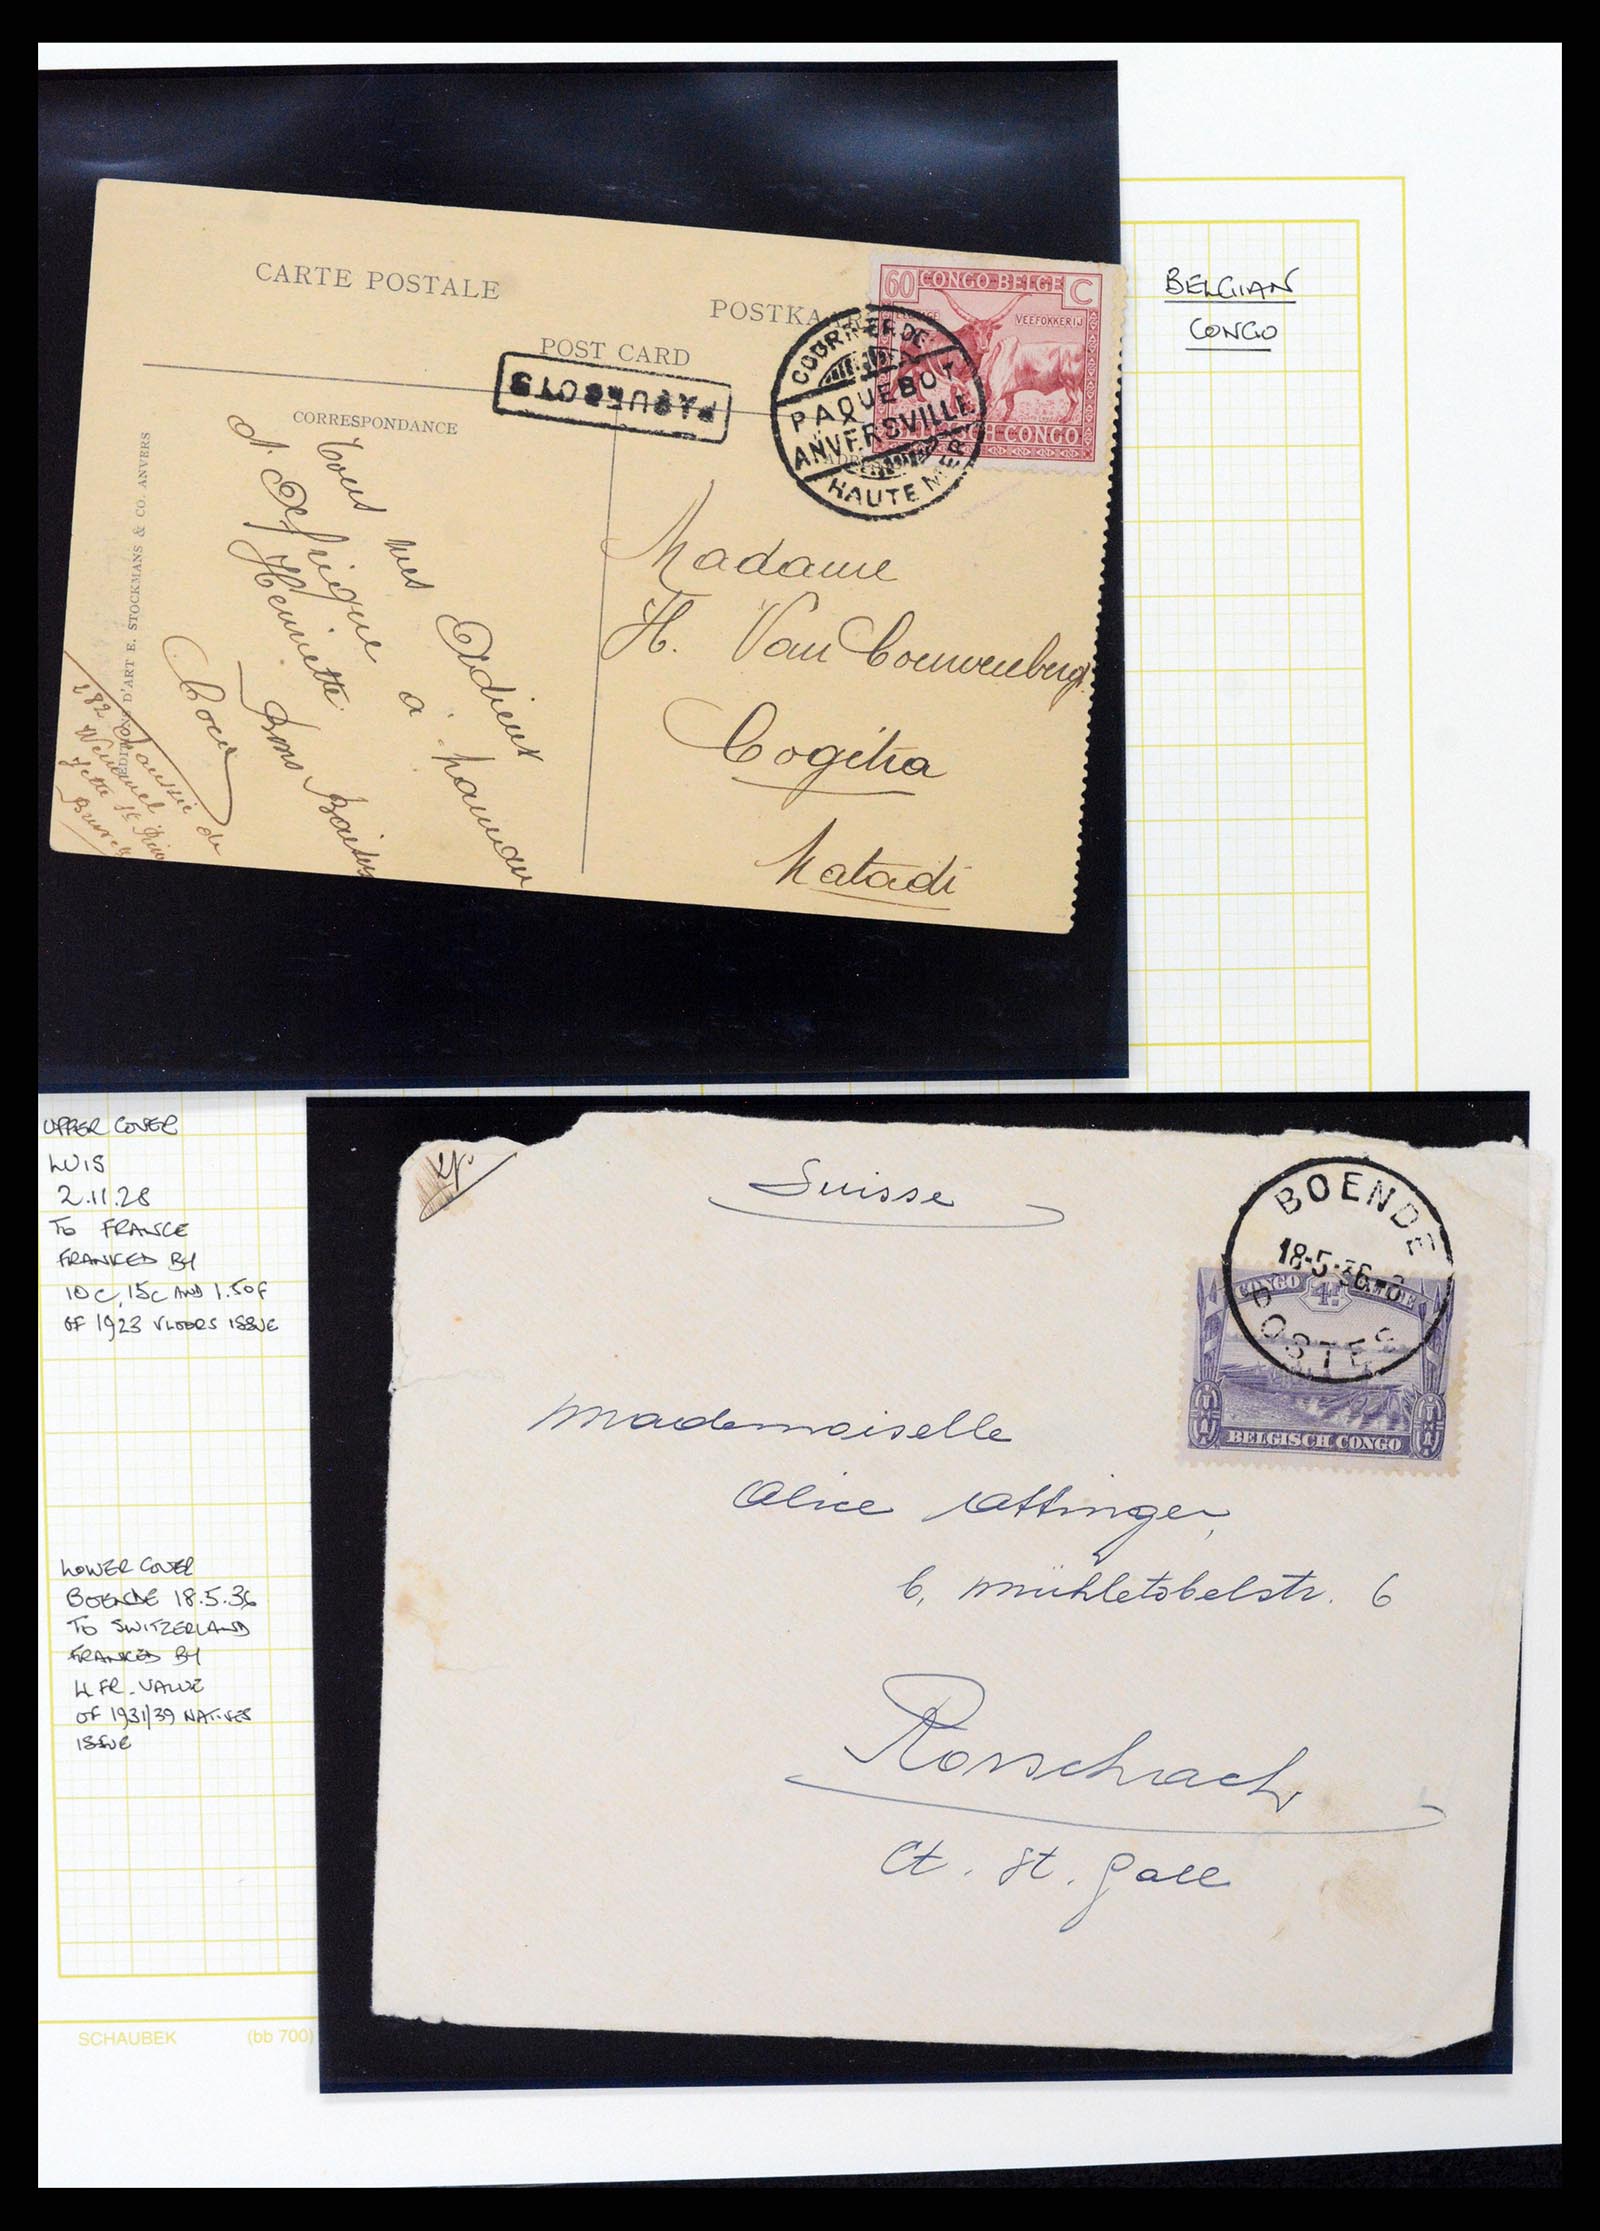 BELGIAN
CONGO
CARTE POSTALE
POSTKAART
POST CARD
CORRESPONDANCE
PAQUEBOTS
60 CONGO BELGE C
VEEFOKKERIJ
COURRIER DE
PAQUEBOT
ANVERSVILLE
HAUTE MER
EDITIONS D'ART E. STOCKMANS & CO. ANVERS
Tous mes Adieux
d'Afrique à Maman
Henriette
Bons Baisers
282 Chaussée de
Wemmel
Jette St
Madame
H. Van Couwenberg
Cogétra
Matadi
UPPER COVER
LUIS
2.11.28
TO FRANCE
FRANKED BY
10C, 15C AND 1.50F
OF 1923 VLOORS ISSUE
LOWER COVER
BOENDE 18.5.36
TO SWITZERLAND
FRANKED BY
4 FR. VALUE
OF 1931/39 NATIVES
ISSUE
Suisse
BOENDE
18-5-36
POSTES
CONGO 4F BELGE
BELGISCH CONGO
Mademoiselle
Alice Attinger,
6, Mühletobelstr. 6
Rorschach
Ct. St. Gall
SCHAUBEK (bb 700)